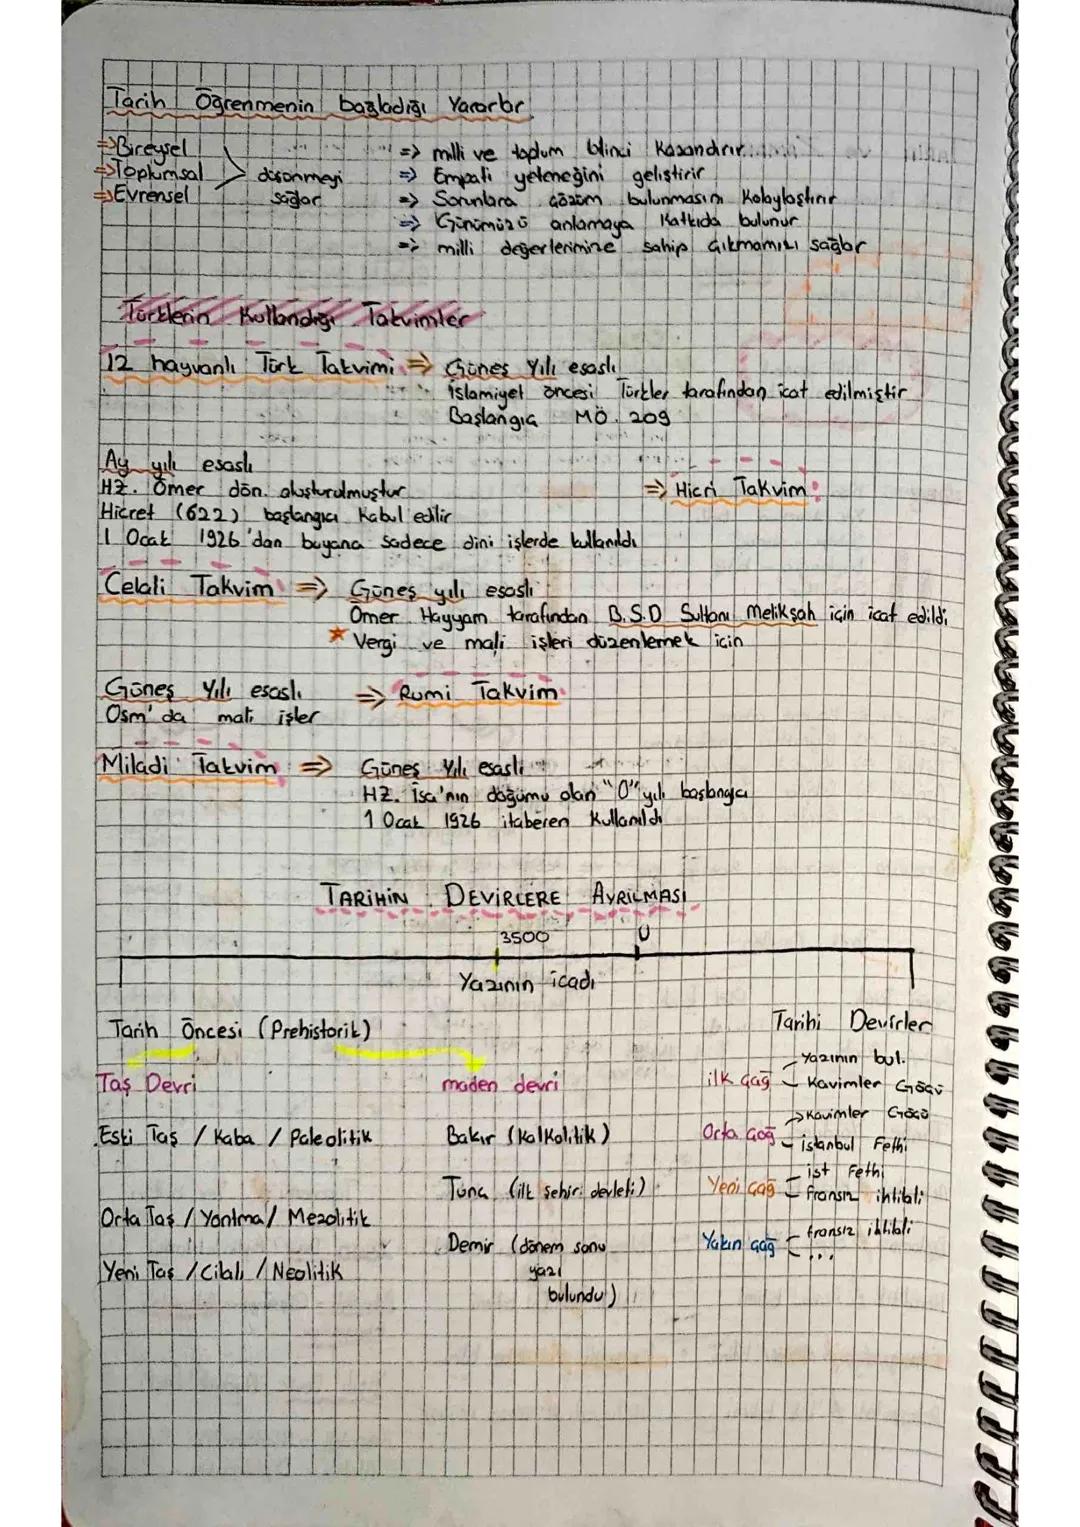 Tarih Öğrenmenin bağladığı Yararlar
=> Bireysel
=> Toplumsal
=> Evrensel
düşünmeyi
sağlar
=> milli ve toplum bilinci kazandırır
=> Empati yeteneğini geliştirir
=> Sorunlara çözüm bulunmasını Kolaylaştırır
=> Günümüzü anlamaya katkıda bulunur
=> milli değerlerimize sahip çıkmamızı sağlar
Türklerin Kullandığı Takvimler
12 hayvanlı Türk Takvimi => Güneş Yılı esaslı
İslamiyet öncesi Türkler tarafından icat edilmiştir
Başlangıç MÖ. 209
Ay yılı esaslı
HZ. Ömer dön. oluşturulmuştur
Hicret (622) başlangıcı Kabul edilir
1 Ocak 1926'dan buyana sadece dini işlerde kullanıldı
=> Hicri Takvim
Celali Takvim => Güneş yılı esaslı
Ömer Hayyam tarafından B.S.D Sultanı Melikşah için icat edildi
★ Vergi ve mali işleri düzenlemek için
Güneş Yılı esaslı => Rumi Takvim
Osm'da mali işler
Miladi Takvim => Güneş Yılı esaslı
HZ. İsa'nın doğumu olan "0" yılı başlangıcı
1 Ocak 1926 itaberen Kullanıldı
TARİHİN DEVİRLERE AYRILMASI
3500 0
Yazının icadı
Tarih Öncesi (Prehistorik)
Tarihi Devirler
Taş Devri
Eski Taş / Kaba / Paleolitik
Orta Taş / Yontma / Mezolitik
Yeni Taş / Cilalı / Neolitik
maden devri
Bakır (Kalkolitik)
Tunç (ilk şehir devleti)
Demir (dönem sonu
yazı
bulundu)
ilk çağ - Yazının bul.
- Kavimler Göçü
Orta çağ -> Kavimler Göçü
- istanbul Fethi
Yeni çağ - ist Fethi
- fransız ihtilali
Yakın çağ - fransız ihtilali
- ...